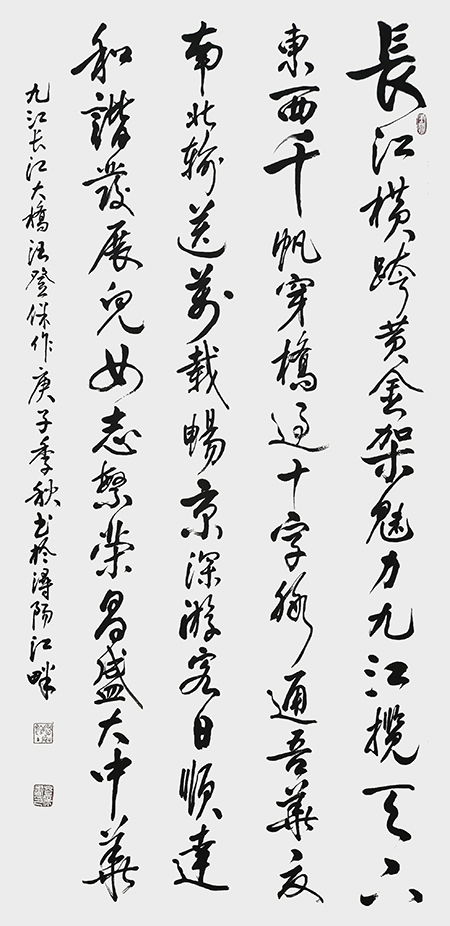 長江横跨黄金架魅力九江攬天下
東西千帆穿橋過十字脉通吾華夏
南北輸送萬載暢京深游客日順達
和諧發展兒女志繁榮昌盛大中華
九江长江大橋汪登作庚子季秋书於潯陽江畔